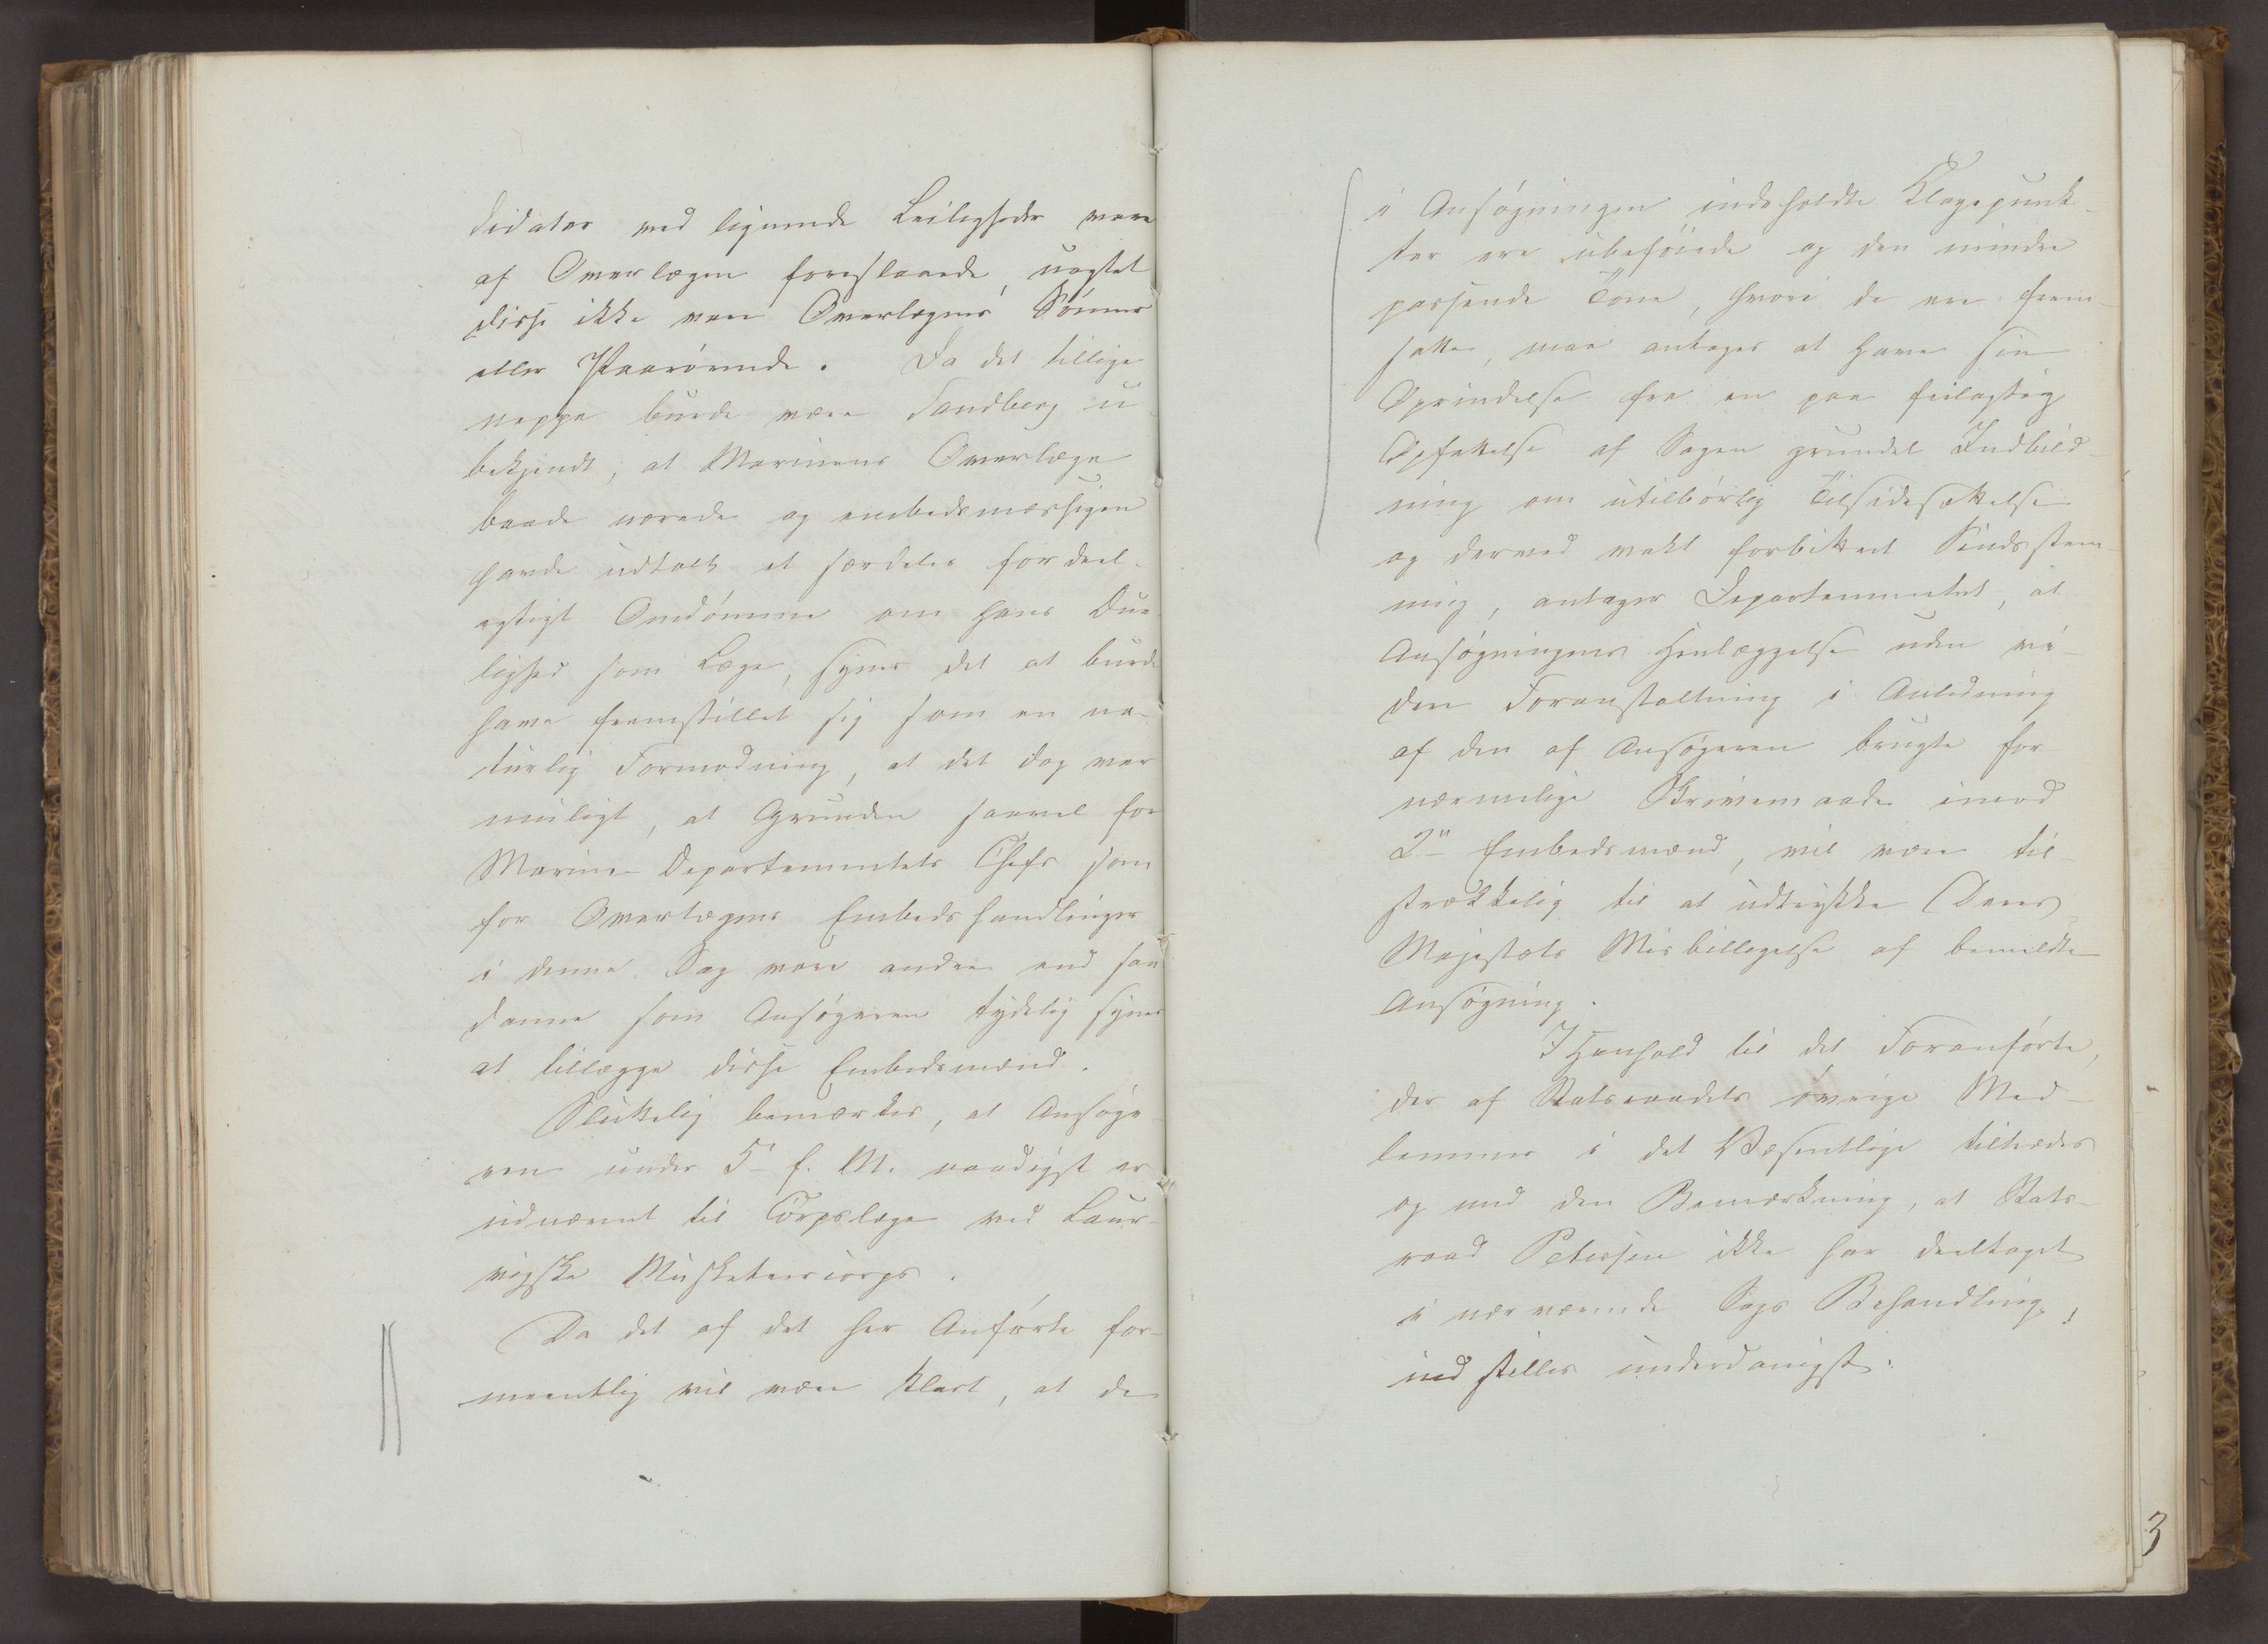 didater ved lignende Leiligheder vare
af Overlægen foreslaaede, uagtet
disse ikke vare Overlægens Sønner
eller Paarørende. Da det tillige
neppe burde være Sandberg u-
bekjendt, at Marinens Overlæge
baade nærede og embedsmæssigen
havde udtalt et særdeles fordeel-
agtigt Omdømme om hans Due-
lighed som Læge, synes det at burde
have fremstillet sig som en na-
turlig Formodning, at det dog var
muligt, at Grunden saavel for
Marine-Departementets Chefs som
for Overlægens Embedshandlinger
i denne Sag vare andre end saa-
danne som Ansøgeren tydelig synes
at tillægge disse Embedsmænd.
Sluttelig bemærkes, at Ansøge-
ren under 5. f. M. naadigst er
udnævnt til Corpslæge ved Laur-
vigske Musketeercorps.
Da det af det her Anførte for-
meentlig vil være klart, at de
i Ansøgningen indeholdte Klagepunk-
ter ere ubeføiede og den mindre
passende Tone, hvori de ere frem-
satte, maa antages at have sin
Oprindelse fra en paa feilagtig
Opfattelse af Sagen grundet Indbild-
ning om utilbørlig Tilsidesættelse
og derved vakt forbittret Sindsstem-
ning, antager Departementet, at
Ansøgningens Henlæggelse uden vi-
dere Foranstaltning i Anledning
af den af Ansøgeren brugte for-
nærmelige Skrivemaade imod
2de Embedsmænd, vil være til-
strækkelig til at udtrykke Deres
Majestæts Misbilligelse af bemeldte
Ansøgning.
I Henhold til det Foranførte,
der af Statsraadets øvrige Med-
lemmer i det Væsentlige tiltrædes
og med den Bemærkning, at Stats-
raad Petersen ikke har deeltaget
i nærværende Sags Behandling,
indstilles underdanigst:
3